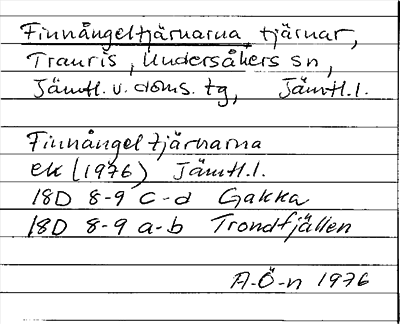 Finnångeltjärnarna, tjärnar,
Tranris, Undersåkers sn,
Jämtl. v. doms. tg, Jämtl. l.
Finnångeltjärnarna
ek (1976) Jämtl. l.
18D 8-9 c-d Gakka
18D 8-9 a-b Trondfjällen
A-Ö-n 1976